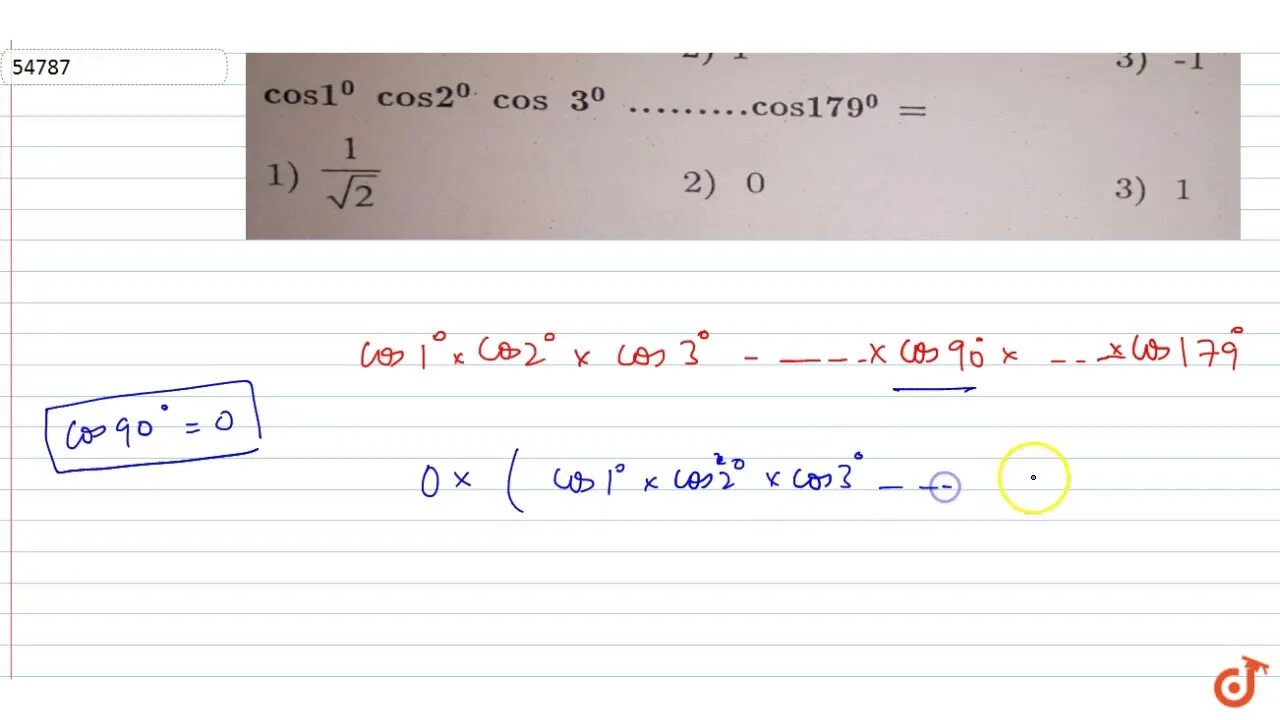 54787
3) -1
cos1⁰ cos2⁰ cos 3⁰ .........cos179⁰ =
1) 1/√2 2) 0 3) 1
cos 1° × cos 2° × cos 3° - ----- × cos 90° × - - - × cos 179°
cos 90° = 0
0 × ( cos 1° × cos 2° × cos 3° - ---